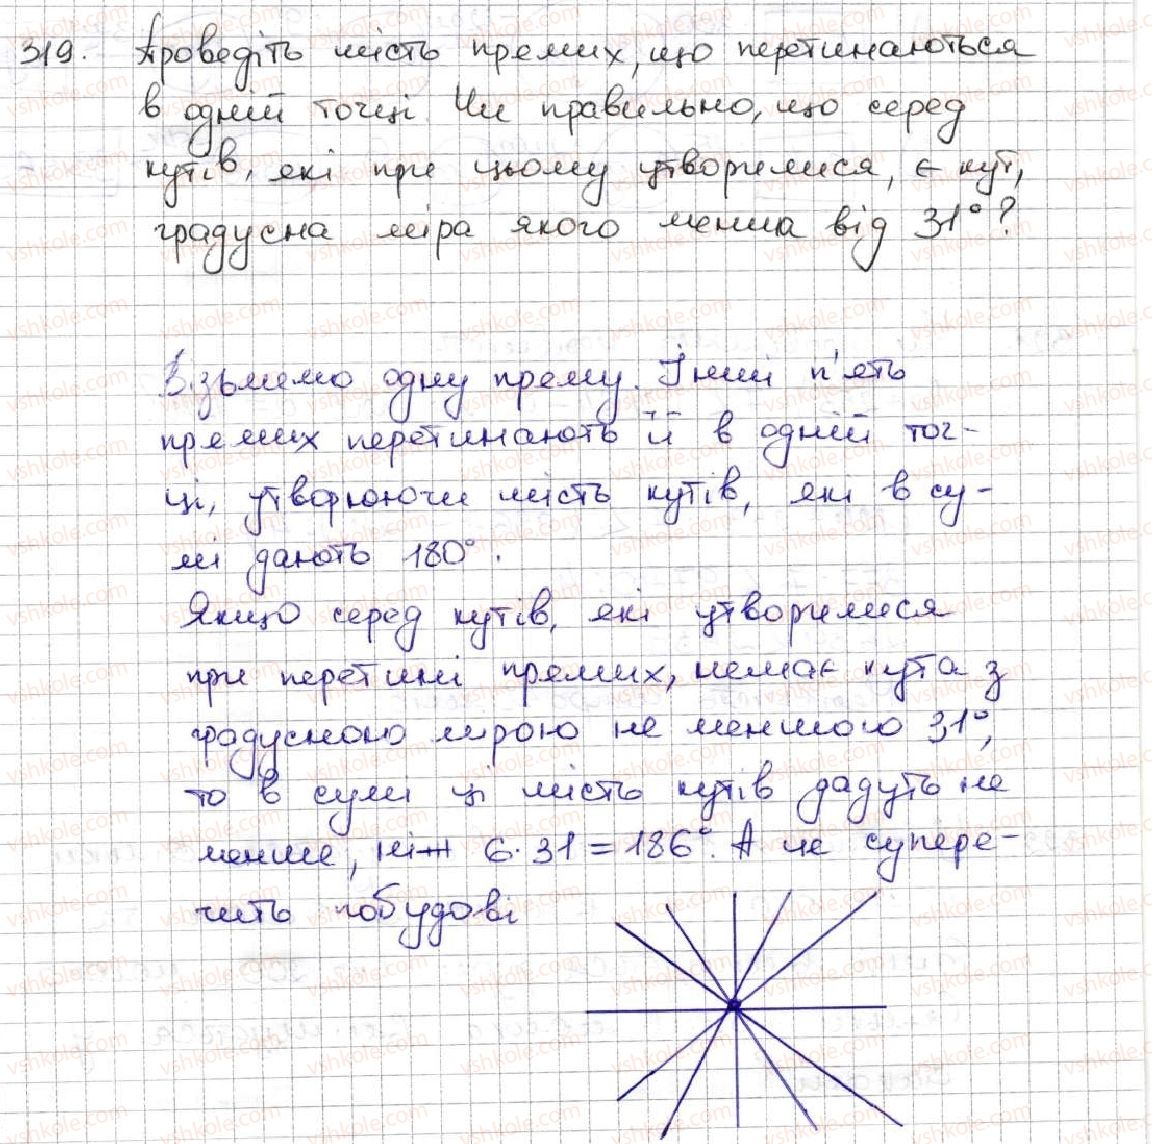 319. Проведіть шість прямих, що перетинаються
в одній точці. Чи правильно, що серед
кутів, які при цьому утворилися, є кут,
градусна міра якого менша від 31°?
Візьмемо одну пряму. Інші п'ять
прямих перетинають її в одній точ-
ці, утворюючи шість кутів, які в су-
мі дають 180°.
Якщо серед кутів, які утворилися
при перетині прямих, немає кута з
градусною мірою не меншою 31°,
то в сумі ці шість кутів дадуть не
менше, ніж 6·31=186°. А це супере-
чить побудові